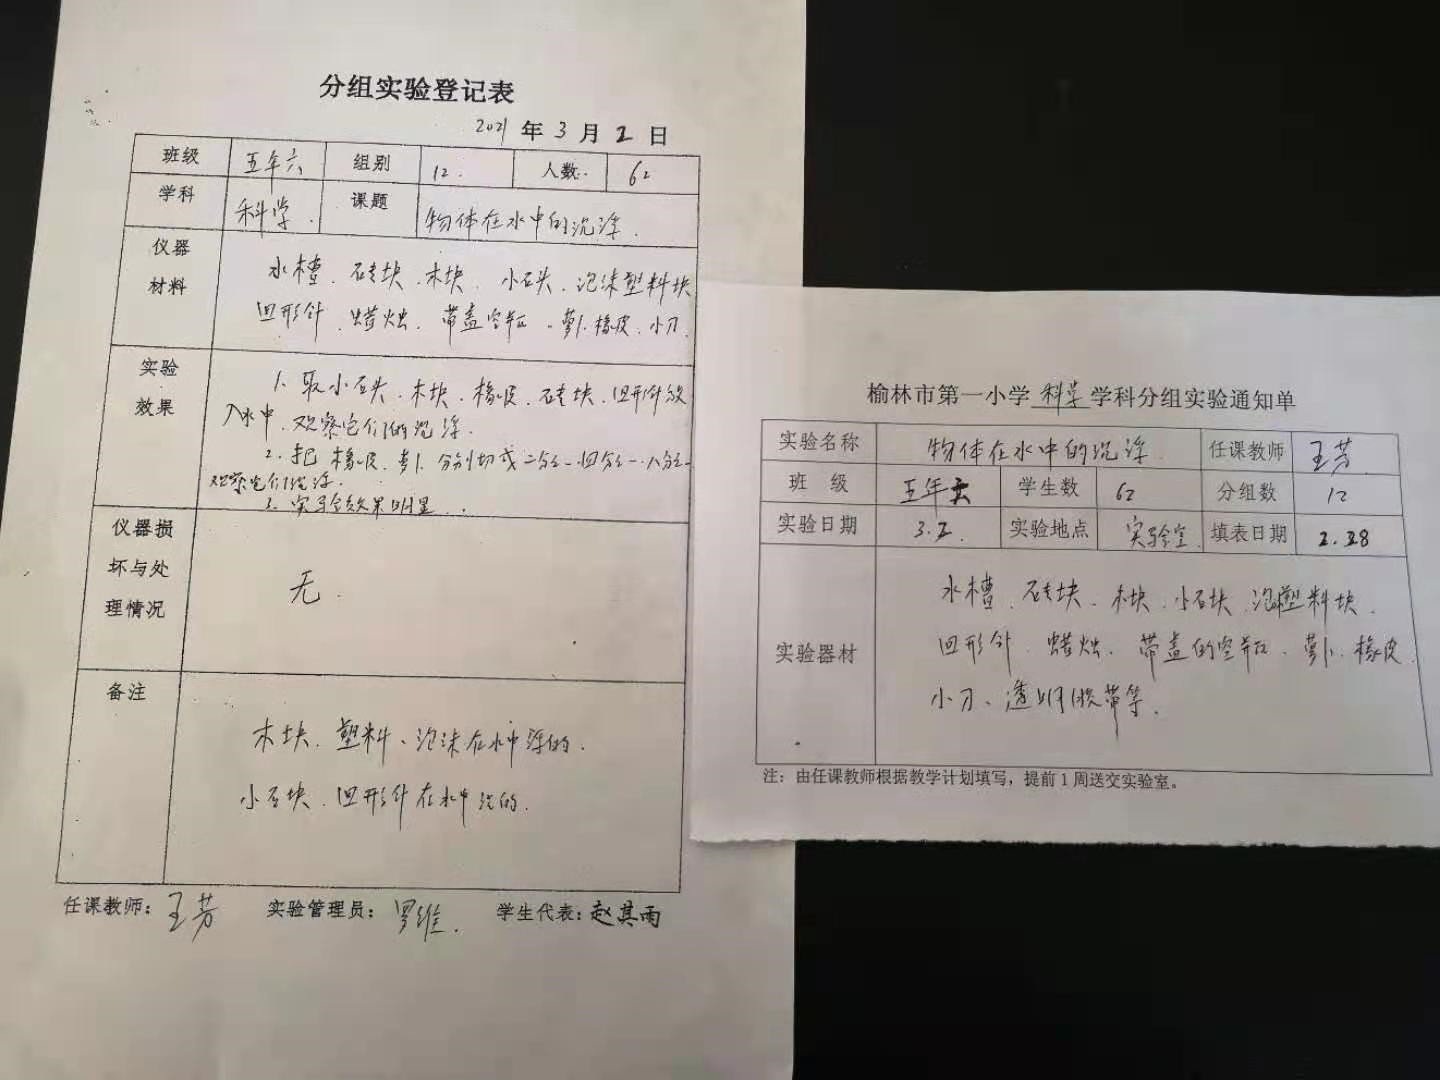 分组实验登记表
2021 年 3 月 2 日
班级 五年六 组别 12. 人数 62
学科 科学. 课题 物体在水中的沉浮.
仪器材料
水槽、砖块、木块、小石头、泡沫塑料块
回形针、蜡烛、带盖空瓶、萝卜、橡皮、小刀.
实验效果
1、取小石头、木块、橡皮、砖块、回形针放
入水中、观察它们的沉浮.
2、把橡皮、萝卜分别切成二分之一、四分之一、八分之一
观察它们沉浮.
3、实验效果明显.
仪器损坏与处理情况
无.
备注
木块、塑料、泡沫在水中浮的.
小石块、回形针在水中沉的.
任课教师：王芳 实验管理员：罗维. 学生代表：赵其雨
榆林市第一小学 科学 学科分组实验通知单
实验名称 物体在水中的沉浮. 任课教师 王芳.
班 级 五年六 学生数 62 分组数 12
实验日期 3.2. 实验地点 实验室. 填表日期 2.28
实验器材
水槽、砖块、木块、小石块、泡沫塑料块、
回形针、蜡烛、带盖的空瓶、萝卜、橡皮、
小刀、透明胶带等.
注：由任课教师根据教学计划填写，提前 1 周送交实验室。